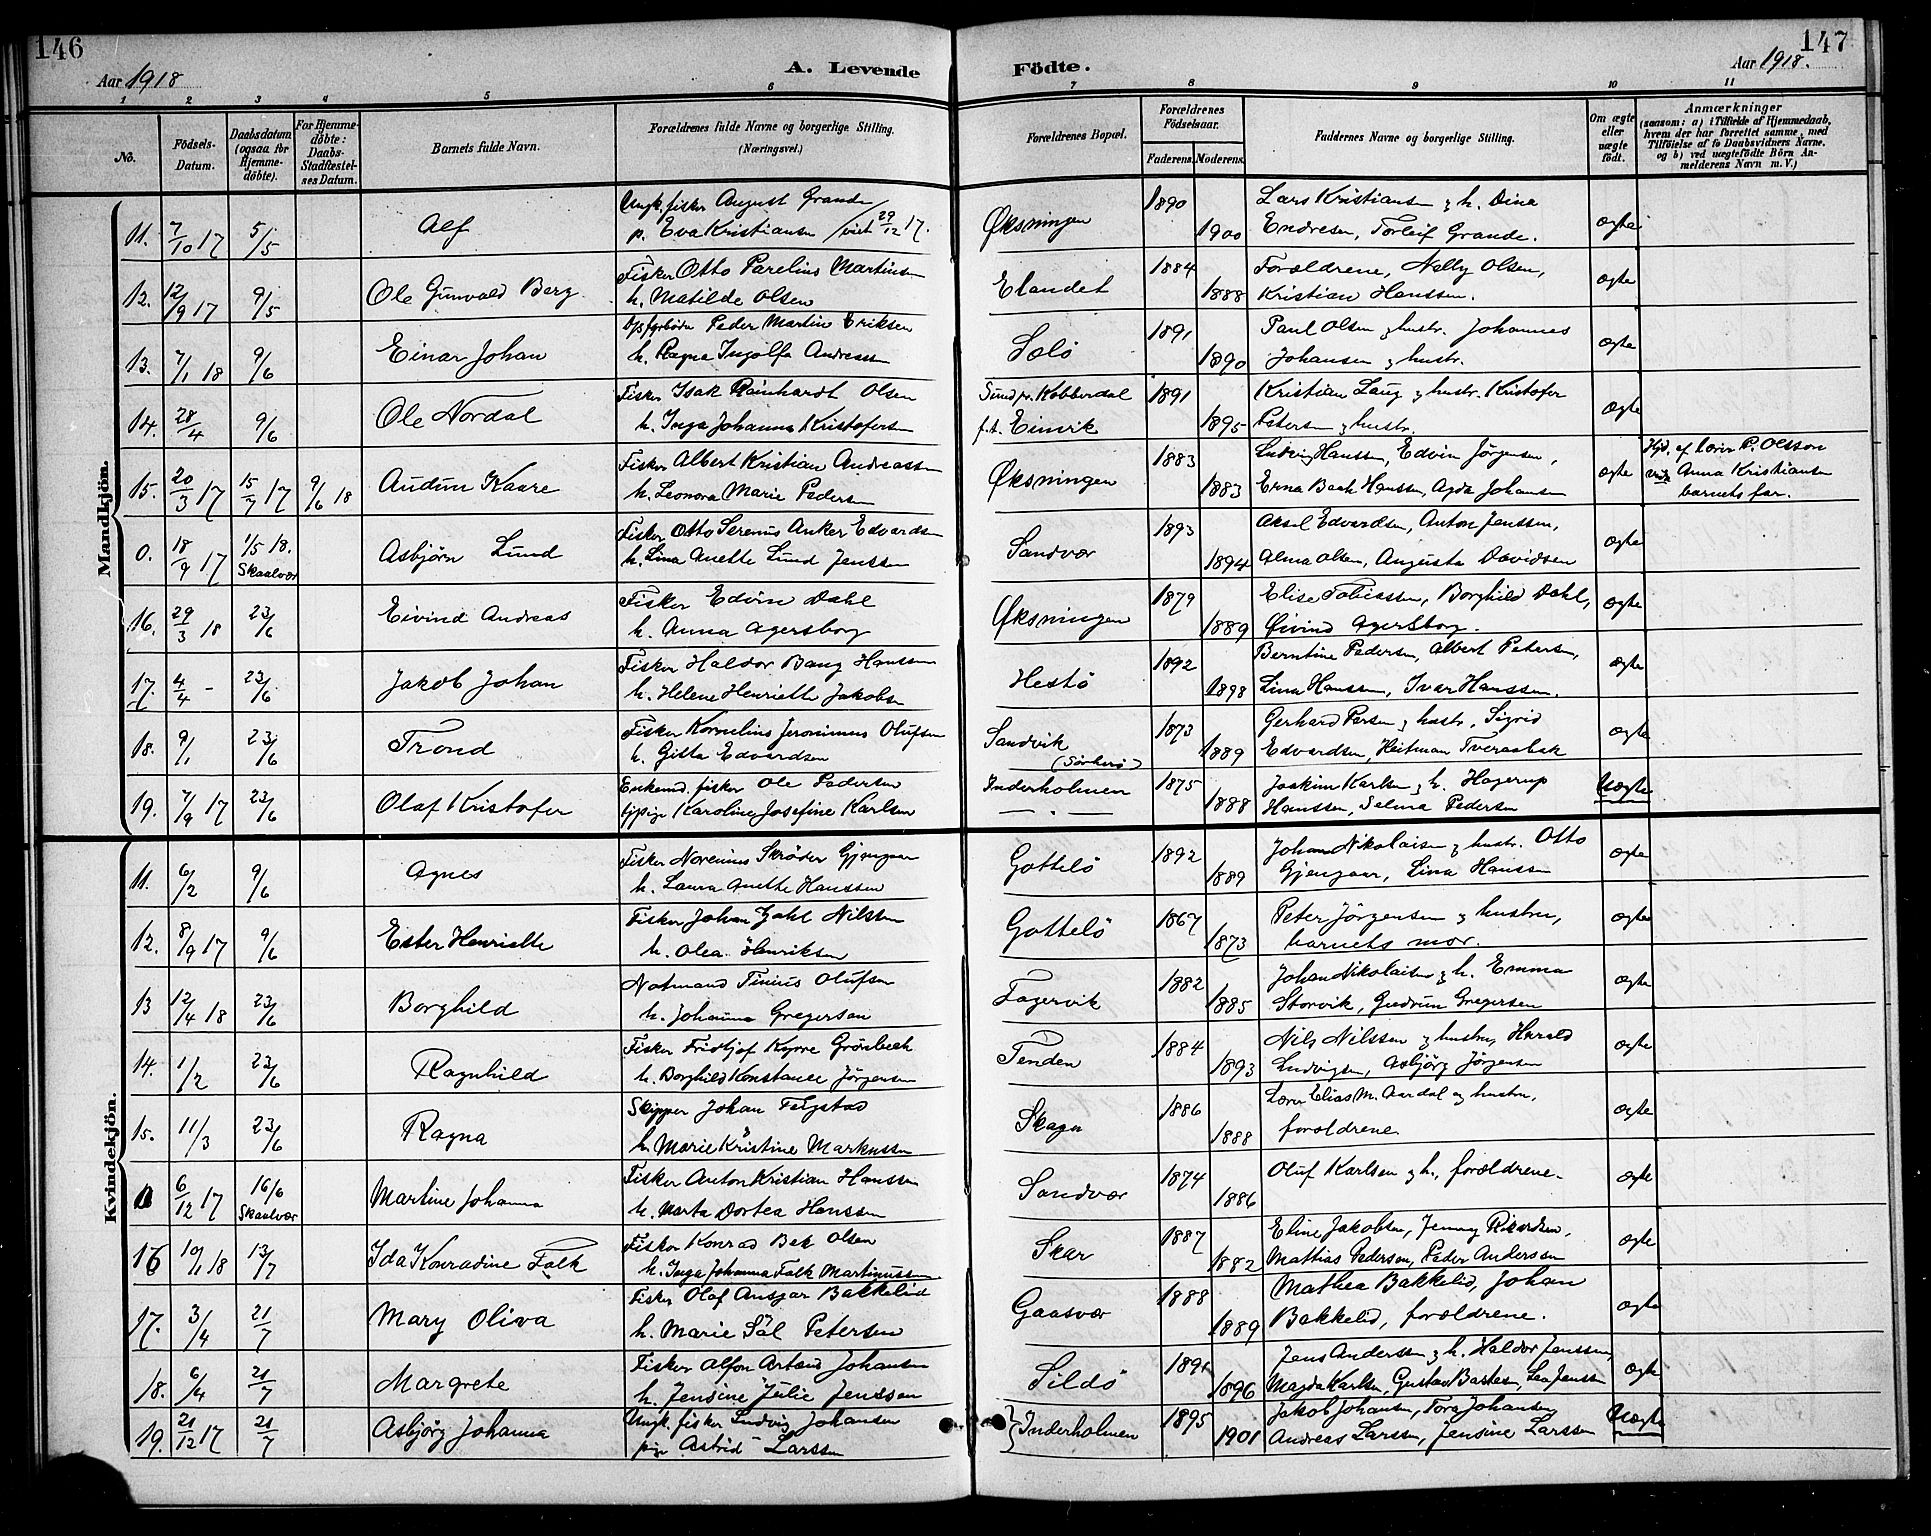 146
Aar 1918
A. Levende
Födte.
147
Aar 1918.
1 2 3 4 5 6 7 8 9 10 11
No.
Födsels-Datum.
Daabsdatum (ogsaa for Hjemmedöbte).
For Hjemmedöbte: Daabs-Stadfæstelses Datum.
Barnets fulde Navn.
Forældrenes fulde Navne og borgerlige Stilling.
(Næringsvei.)
Forældrenes Bopæl.
Forældrenes Födselsaar.
Faderens. Moderens.
Faddernes Navne og borgerlige Stilling.
Om ægte eller uægte födt.
Anmærkninger
(saasom: a) i Tilfælde af Hjemmedaab, hvem der har forrettet samme, med Tilföielse af to Daabsvidners Navne, og b) ved uægtefödte Börn Anmelderens Navn m. V.)
Mandkjön.
11. 7/10 17 5/5 Alf
Ungk. fisker August Grande
p. Eva Kristiansen / viet 29/12 17.
Øksningen 1890 1900
Lars Kristiansen & h. Dina
Endresen, Torleif Grande.
ægte
12. 12/9 17 9/5 Ole Gunvald Berg
Fisker Otto Parelius Martinsen
h. Matilde Olsen
Elandet 1884 1888
Forældrene, Nelly Olsen,
Kristian Hanssen.
ægte
13. 7/1 18 9/6 Einar Johan
Peder Martin Eriksen
h. Ragna Ingolfa Andreassen
Solö 1891 1890
Paul Olsen & hustr. Johannes
Johansen & hustr.
ægte
14. 28/4 9/6 Ole Nordal
Fisker Isak Reinhardt Olsen
h. Inga Johanna Kristofersen
Sund pr. Kobberdal
f.t. Einvik 1891 1895
Kristian Laug & hustr. Kristofer
Petersen & hustr.
ægte
15. 20/3 17 15/7 17 9/6 18 Audun Kaare
Fisker Albert Kristian Andreassen
h. Leonora Marie Pedersen
Øksningen 1883 1883
Ludvig Hanssen, Edvin Jörgensen,
Erna Baak Hanssen, Agda Johansen
ægte
Hjd. af Lærer P. Olsson
vidn. Anna Kristiansen
barnets far.
0. 18/9 17 1/5 18. Skaalvær Asbjörn Lund
Fisker Otto Serenius Anker Edvardsen
h. Lina Anette Lund Jenssen
Sandvær 1893 1894
Aksel Edvardsen, Anton Jenssen,
Alma Olsen, Augusta Davidsen
ægte
16. 29/3 18 23/6 Eivind Andreas
Fisker Edvin Dahl
h. Anna Agersborg
Øksningen 1879 1889
Elise Tobiassen, Borghild Dahl,
Øivind Agersborg.
ægte
17. 4/4 - 23/6 Jakob Johan
Fisker Haldor Bang Hanssen
h. Helene Henriette Jakobsen
Hestö 1892 1898
Berntine Pedersen, Albert Petersen,
Lina Hanssen, Ivar Hanssen.
ægte
18. 9/1 23/6 Trond
Fisker Kornelius Jeronimus Olufsen
h. Gitta Edvardsen
Sandvik
1873 1889
Gerhard Persen & hustr., Sigrid
Edvardsen, Heitman Tveraabak
ægte
19. 7/9 17 23/6 Olaf Kristofer
Enkemd. fisker Ole Pedersen
pige Karoline Josefine Karlsen
Inderholmen
— . — 1875 1888
Joakim Karlsen & h. Hagerup
Hanssen, Selma Pedersen
Uægte
Kvindekjön.
11. 6/2 9/6 Agnes
Fisker Norenius Skröder Gjengaar
h. Laura Anette Hanssen
Gottelö 1892 1889
Johan Nikolaisen & hustr. Otto
Gjengaar, Lina Hanssen
ægte
12. 8/9 17 9/6 Ester Henriette
Fisker Johan Zahl Nilssen
h. Olea Henriksen
Gottelö 1867 1873
Peter Jörgensen & hustru,
barnets mor.
ægte
13 12/4 18 23/6 Borghild
Notmand Tinius Olufsen
h. Johanna Gregersen
Fagervik 1882 1885
Johan Nikolaisen & h. Emma
Storvik, Gudrun Gregersen
ægte
14. 1/2 23/6 Ragnhild
Fisker Fridtjof Kyrre Grönbech
h. Borghild Konstance Jörgensen
Tenden 1884 1893
Nils Nilssen & hustru, Harald
Ludvigsen, Asbjörg Jörgensen
ægte
15. 11/3 23/6 Ragna
Skipper Johan Feigstad
h. Marie Kristine Markussen
Skagen 1886 1888
Lærer Elias M. Aardal og hustru,
forældrene.
ægte
0 6/12 17 16/6 Skaalvær Martine Johanna
Fisker Anton Kristian Hanssen
h. Marta Dortea Hanssen
Sandvær 1874 1886
Oluf Karlsen & h. forældrene.
ægte
16 19/1 18 13/7 Ida Konradine Falk
Fisker Konrad Bek Olsen
h. Inga Johanna Falk Martinussen
Skar 1887 1882
Eline Jakobsen, Jenny Rikardsen,
Mathias Pedersen, Peder Anderssen
ægte
17. 3/4 21/7 Mary Oliva
Fisker Olaf Ansgar Bakkelid
h. Marie Söl Petersen
Gaasvær 1888 1889
Mathea Bakkelid, Johan
Bakkelid, forældrene.
ægte
18. 6/4 21/7 Margrete
Fisker Alfon Johansen
h. Jensine Julie Jenssen
Sildö 1891 1896
Jens Anderssen & h. Haldor Jenssen,
Magda Karlsen, Gustav Lea Jenssen
ægte
19. 21/12 17 21/7 Asbjörg Johanna
Ungk. fisker Ludvig Johansen
pige Astrid Larssen
Inderholmen 1895 1901
Jakob Johansen, Tora Johansen,
Andreas Larssen, Jensine Larssen
Uægte